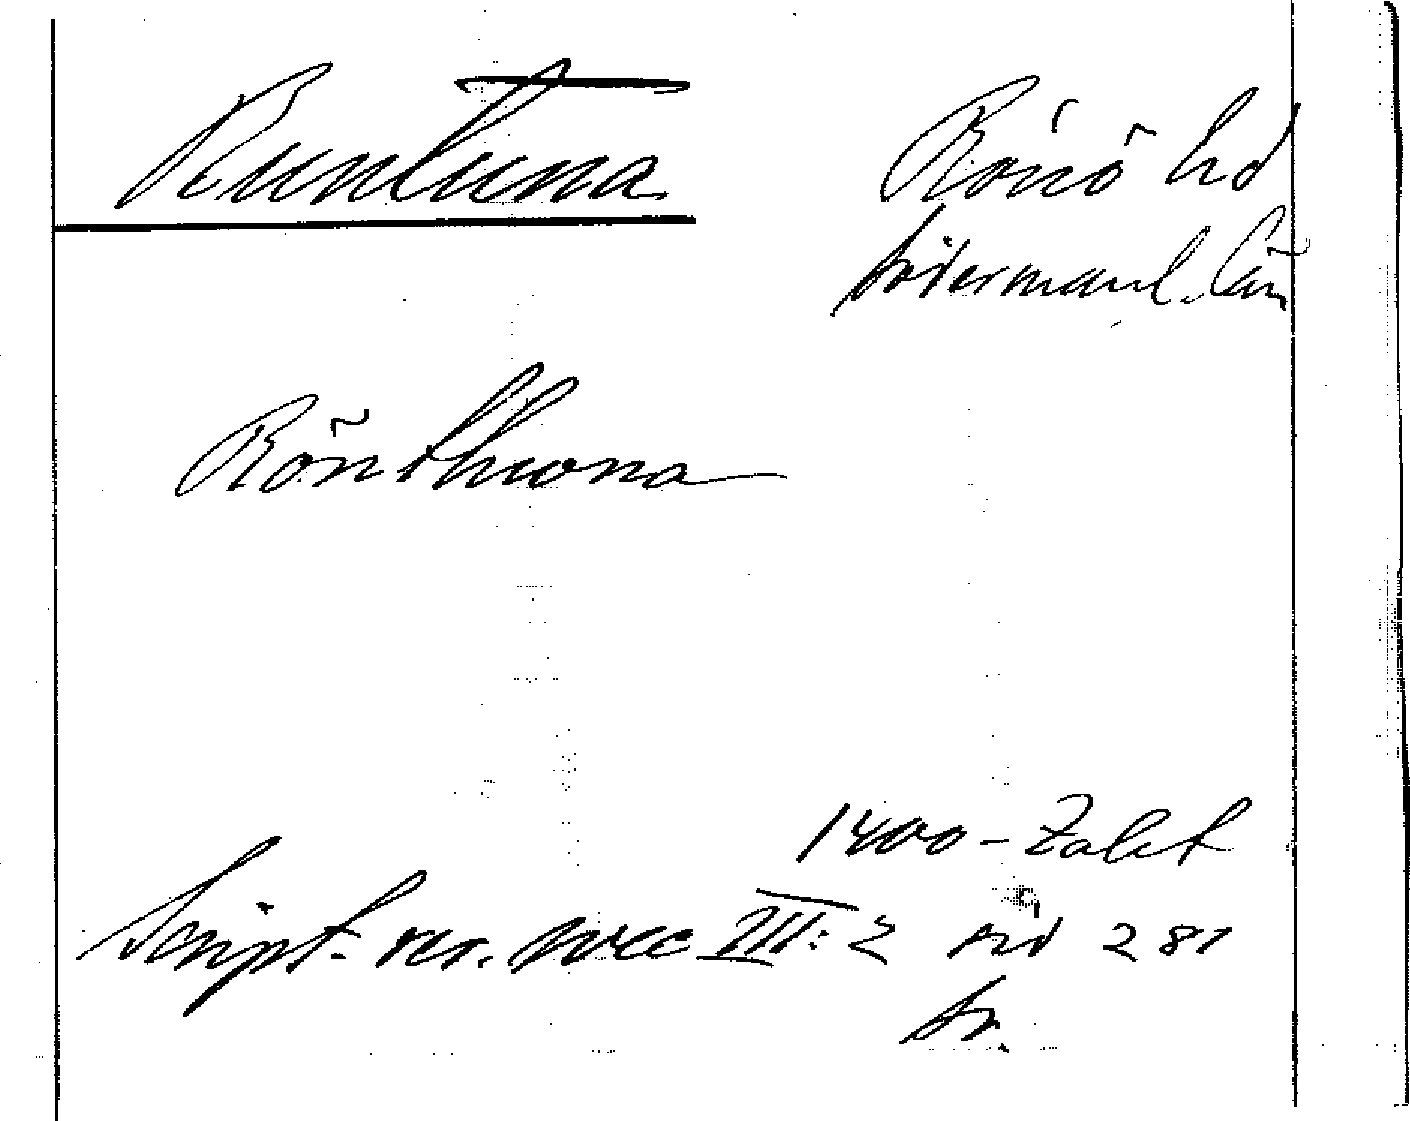 Runtuna
Rönö hd
Södermanl. län
Rönthuna
1400-talet
Script. rer. svec III:2 sid 281
tr.